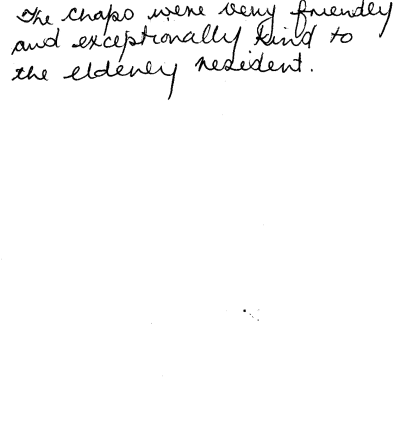 The chaps were very friendly
and exceptionally kind to
the elderly resident.